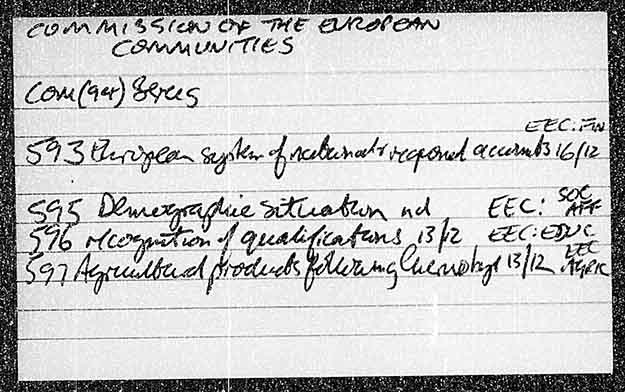 COMMISSION OF THE EUROPEAN
COMMUNITIES
COM(94) Series
EEC: FIN
593 European system of national & regional accounts 16/12
595 Demographic situation nd EEC: SOC AFF
596 recognition of qualifications 13/12 EEC: EDUC
597 Agricultural products following Chernobyl 13/12 EEC AGRIC